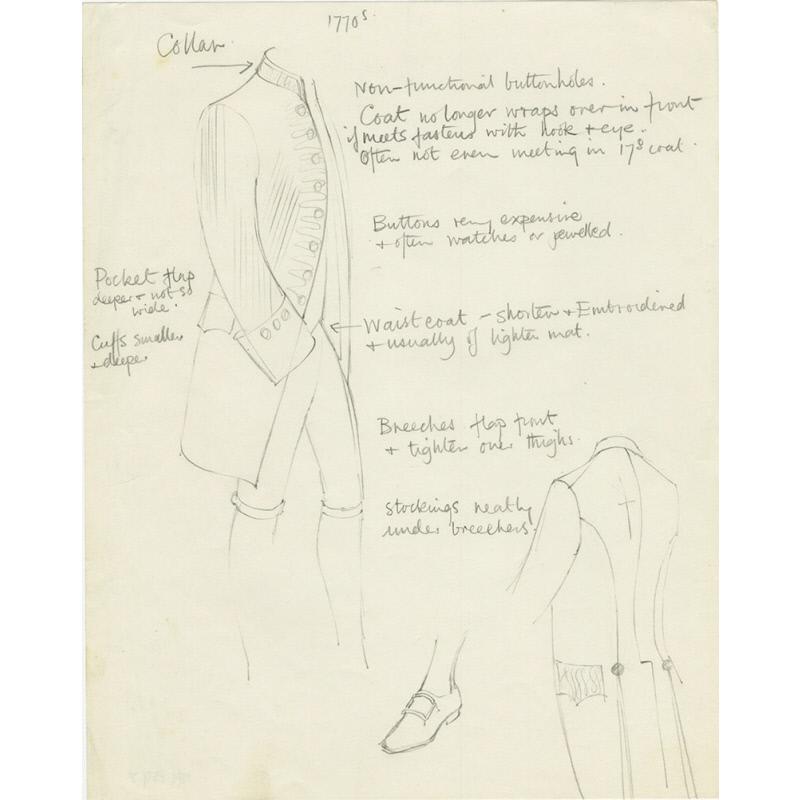 1770s.
Collar.
Non-functional buttonholes.
Coat no longer wraps over in front
if meets fastens with hook + eye.
Often not even meeting in 17s coat.
Buttons very expensive
+ often watches or jewelled.
Pocket flap
deeper + not so
wide.
Cuffs smaller
+ deeper.
Waistcoat - shorter + Embroidered
+ usually of lighter mat.
Breeches flap front
+ tighter over thighs.
Stockings neatly
under breechers.